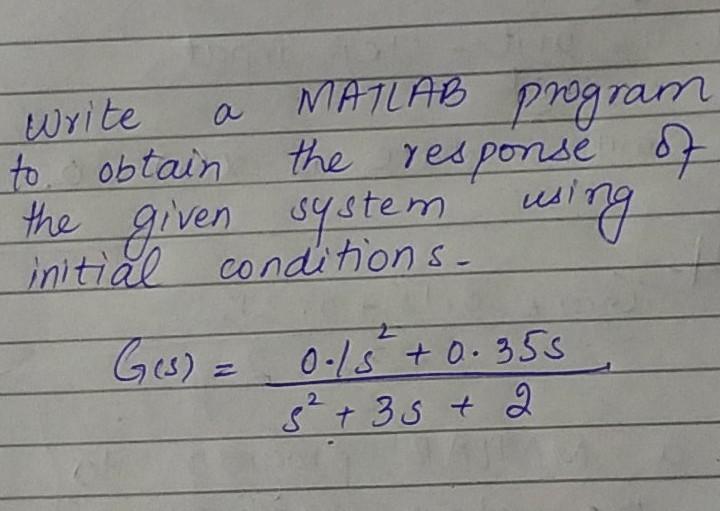 Write a MATLAB program
to obtain the response of
the given system using
initial conditions-
G(s) = 0.1s² + 0.35s
s² + 3s + 2